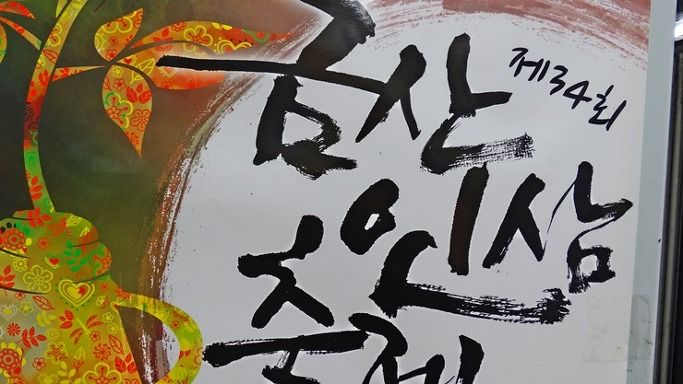 제34회
금산
인삼
축제